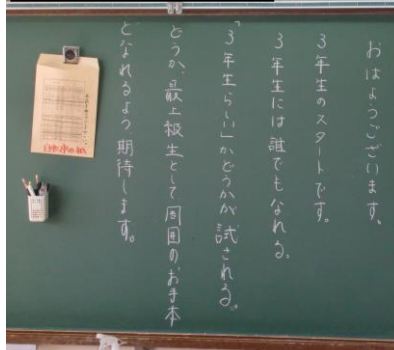 おはようございます。
3年生のスタートです。
3年生には誰でもなれる。
「3年生らしい」かどうかが試される。
どうか、最上級生として周囲のお手本
となれるよう、期待します。